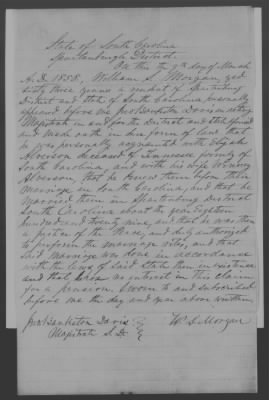 State of South Carolina
Spartanburgh District.
On this the 9th day of March
A.D. 1858, William S. Morgan, aged
sixty three years a resident of Spartanburg
District and State of South Carolina personally
appeared before me Jno Bankston Davis acting
Magistrate in and for the District and State aforesaid
and made oath in due form of law that
he was personally acquainted with Elijah
Alverson deceased of Tennessee formerly of
South Carolina and with his wife
Alverson, that he knew them before their
marriage in South Carolina, and that he
married them in Spartanburg District
South Carolina about the year eighteen
hundred and twenty nine, and that he was then
a justice of the Peace, and duly authorized
to perform the marriage rites, and that
said marriage was done in accordance
with the laws of said State then in existence
and that he has no interest in this claim
for a pension. Sworn to and subscribed
before me the day and year above written
Jno Bankston Davis W. S. Morgan
Magistrate S. D.